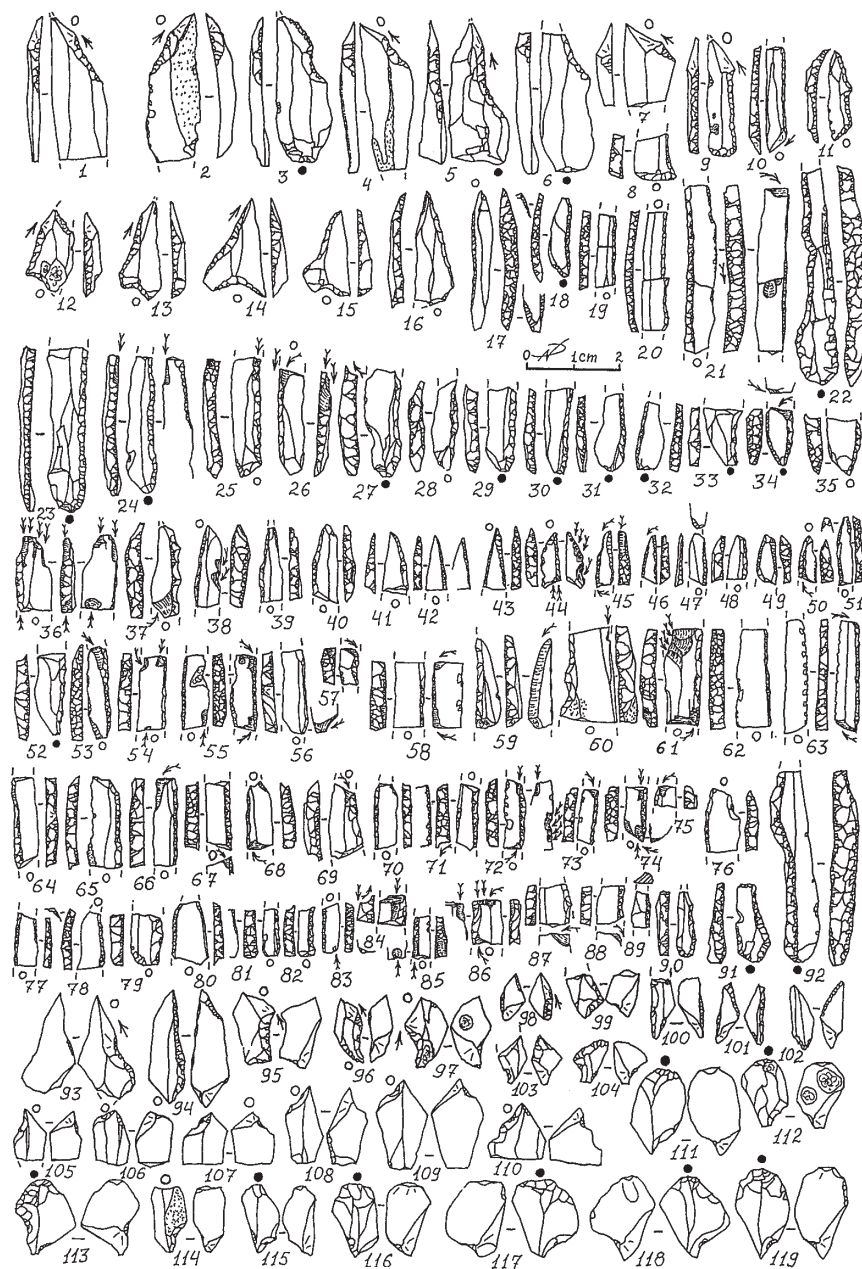 1 2 3 4 5 6 7 8 9 10 11
12 13 14 15 16 17 18 19 20 21 22
0 1cm 2
23 24 25 26 27 28 29 30 31 32 33 34 35
36 37 38 39 40 41 42 43 44 45 46 47 48 49 50 51
52 53 54 55 56 57 58 59 60 61 62 63
64 65 66 67 68 69 70 71 72 73 74 75 76
77 78 79 80 81 82 83 84 85 86 87 88 89 90 91 92
93 94 95 96 97 98 99 100 101 102
103 104
105 106 107 108 109 110 111 112
113 114 115 116 117 118 119